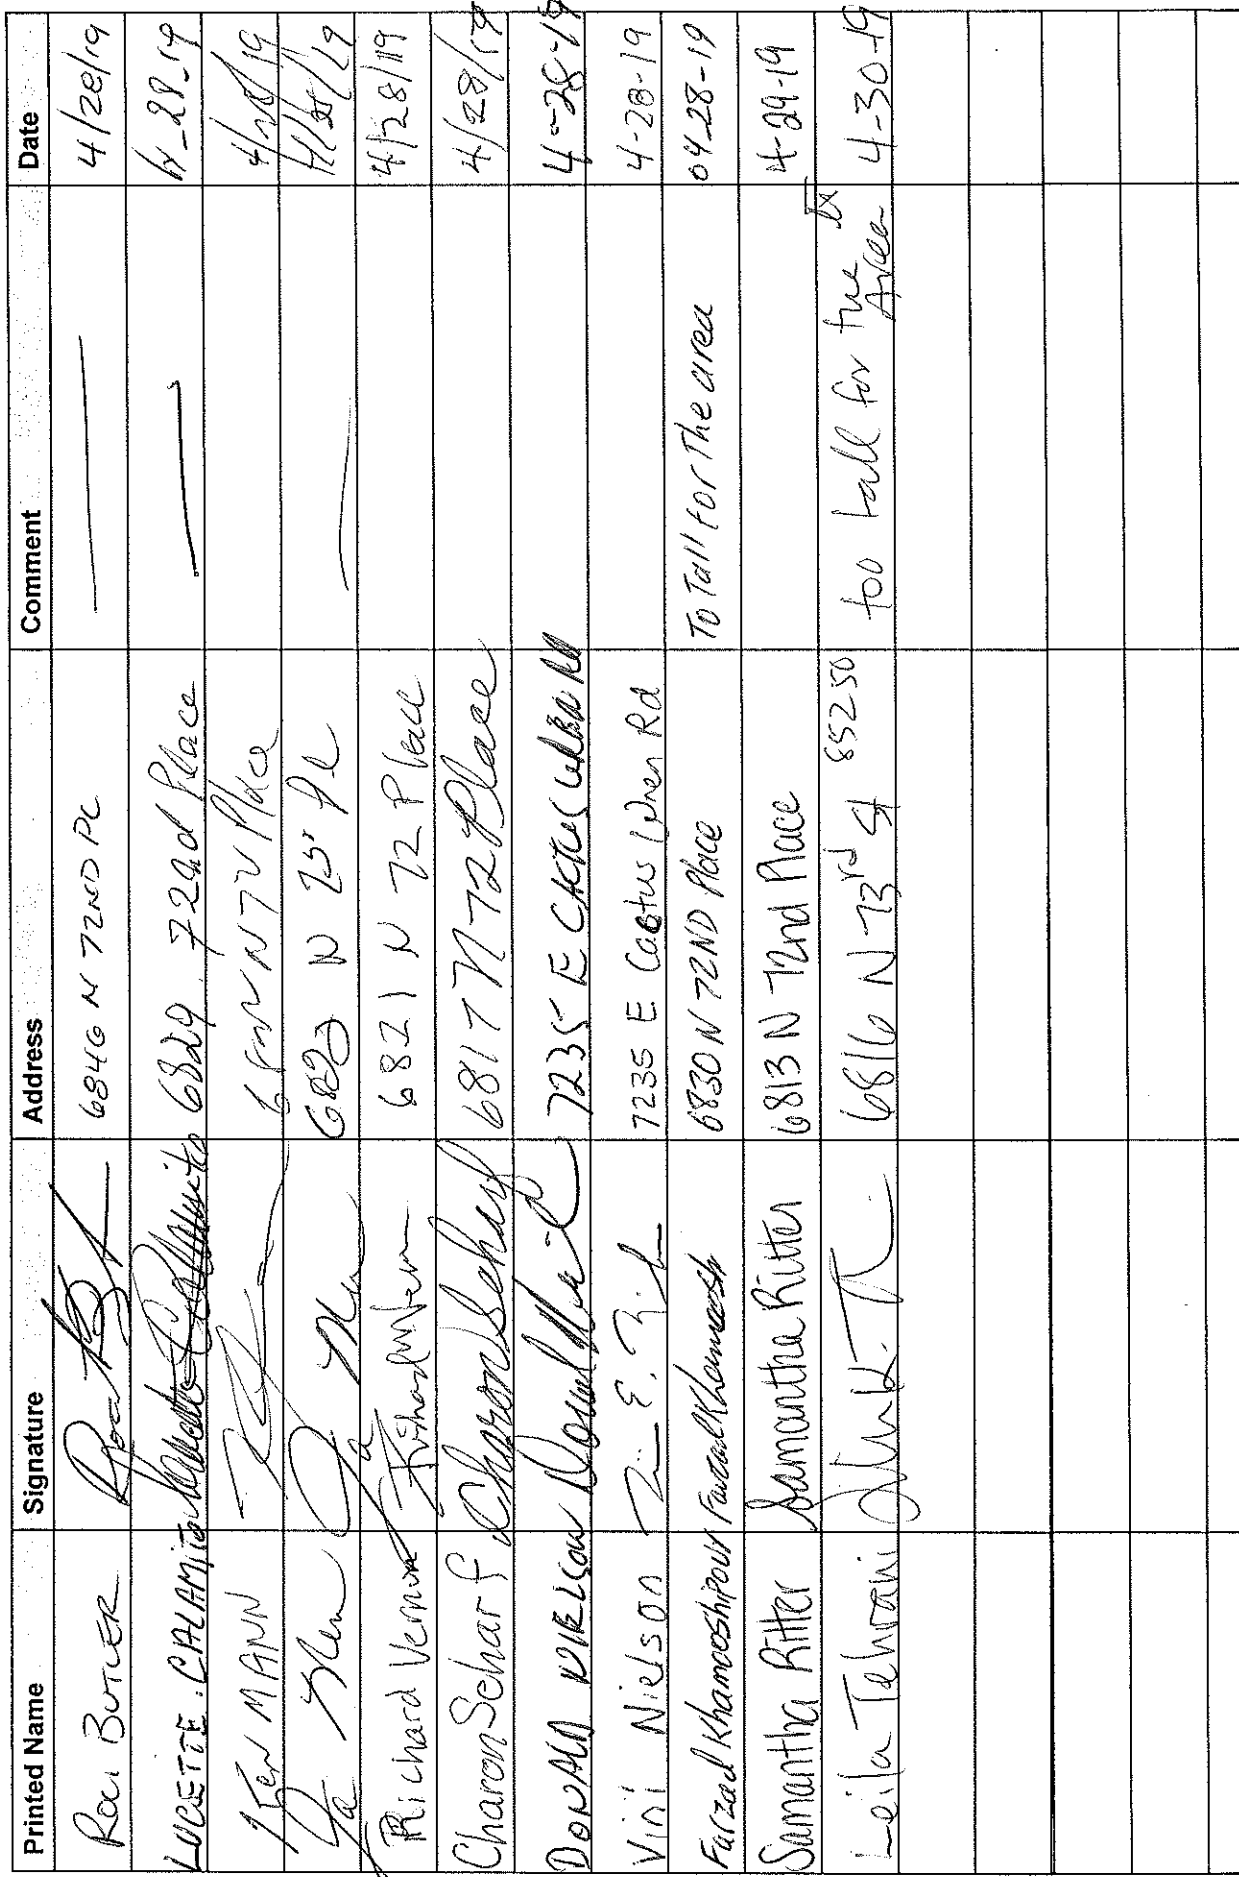 Printed Name Signature Address Comment Date
Roci BUTLER 6846 N 72ND PL 4/28/19
LUCETTE CALAMITO 6829 72nd Place 28-19
KEN MANN N Place 4/28/19
N Pl 4/28/19
Richard Vernon 6821 N 72 Place 4/28/19
Charon Scharf Charon Scharf 6817 N 72 Place 4/28/19
DONALD NIELSON 7235 E CACTUS WREN Rd 4-28-19
Vini Nielson 7235 E. Cactus Wren Rd 4-28-19
Farzad Khamooshipour Farzad Khamoosh 6830 N 72ND Place To Tall for The area 04-28-19
Samantha Ritter Samantha Ritter 6813 N 72nd Place 4-29-19
Leila Tehrani 6816 N 73rd St 85250 too tall for the Area 4-30-19